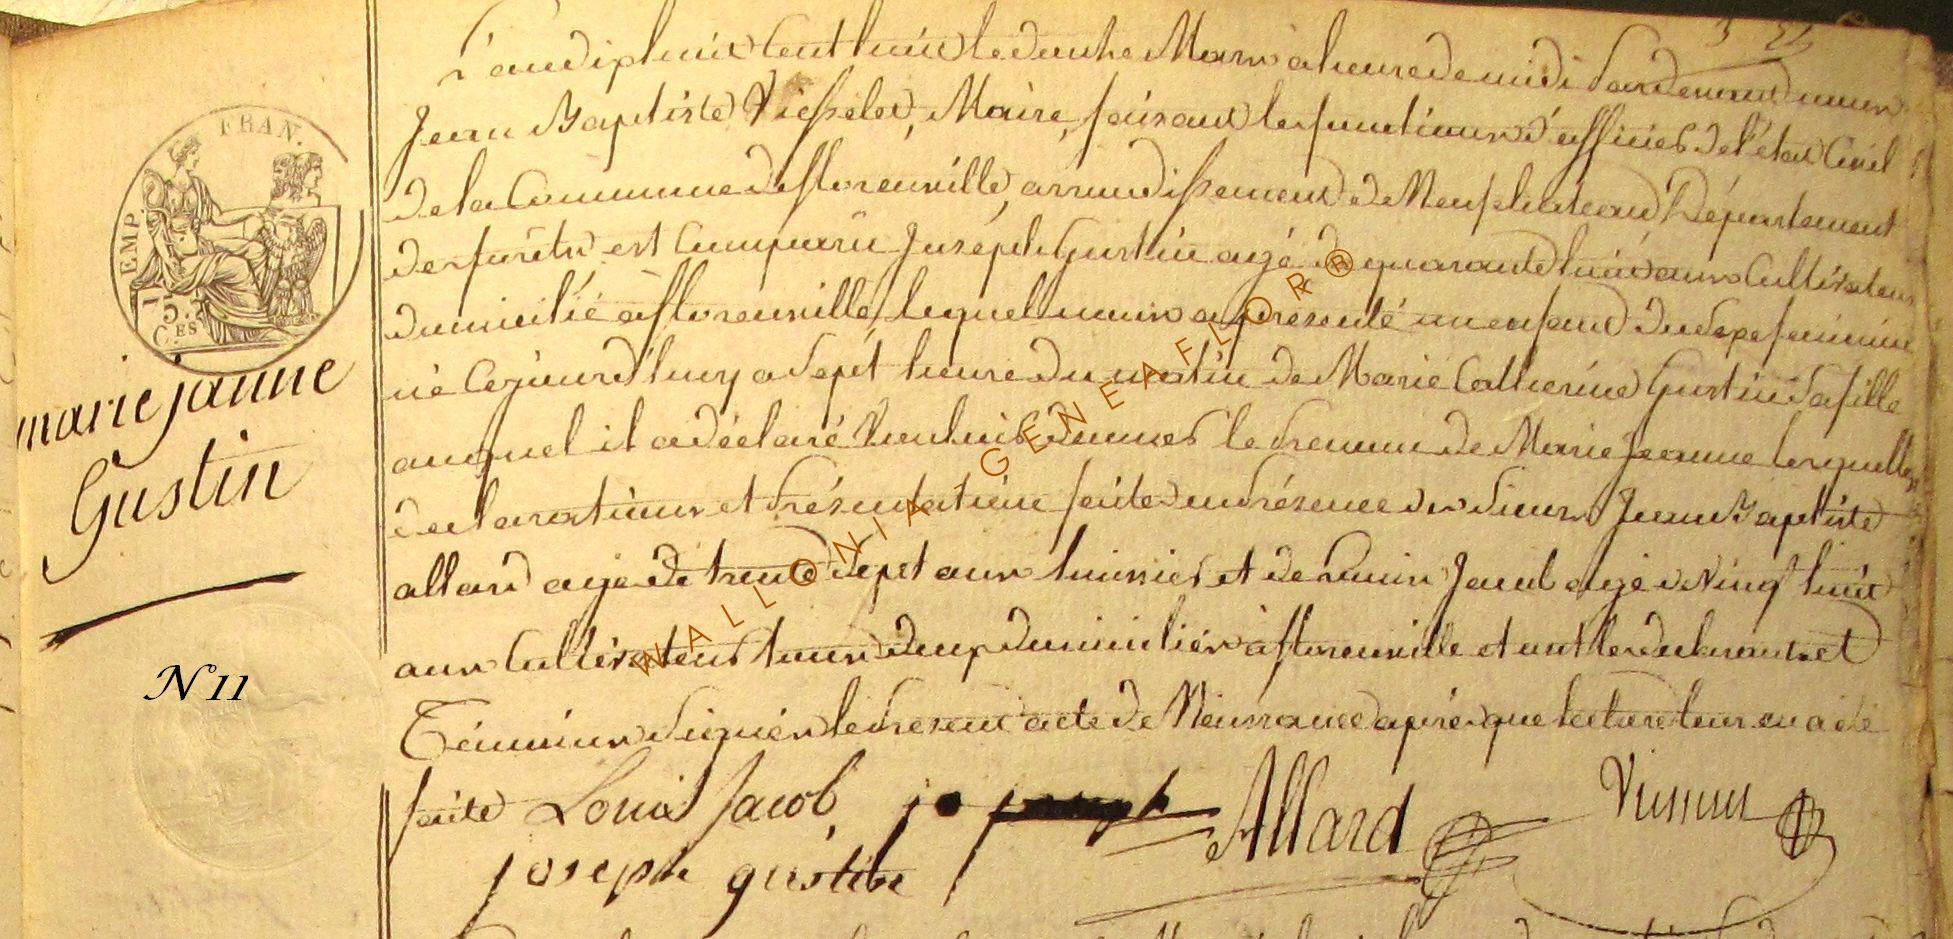 EMP. FRAN.
15.
C.ES
marie janne
Gustin
N 11
L'an dix huit Cent huit le douze Mars a heure de midi Pardevant nous
Jean Baptiste Maire, faisant les fonctions d'officier de l'état Civil
de la Commune de florenville, arrondissement de Neufchateau Département
des forêts est Comparu Joseph Gustin agé de quarante huit ans Cultivateur
domicilié a florenville, lequel nous a presenté un enfant du sexe feminin
né Cejourd'huy a Sept heure du matin de Marie Catherine Gustin Sa fille
auquel il a déclaré Vouloir donner le prenom de Marie Jeanne lesquelles
declarations et présentation faite en présence des Sieurs Jean Baptiste
allard agé de trente Sept ans huissier et de Louis Jacob agé de Vingt huit
ans Cultivateur tous deux domiciliés à florenville et ont les declarant et
Témoins Signés le present acte de Naissance après que lecture leur en a été
faite Louis Jacob Allard
joseph gustin
WALLONIA - GENEAFLOR ®